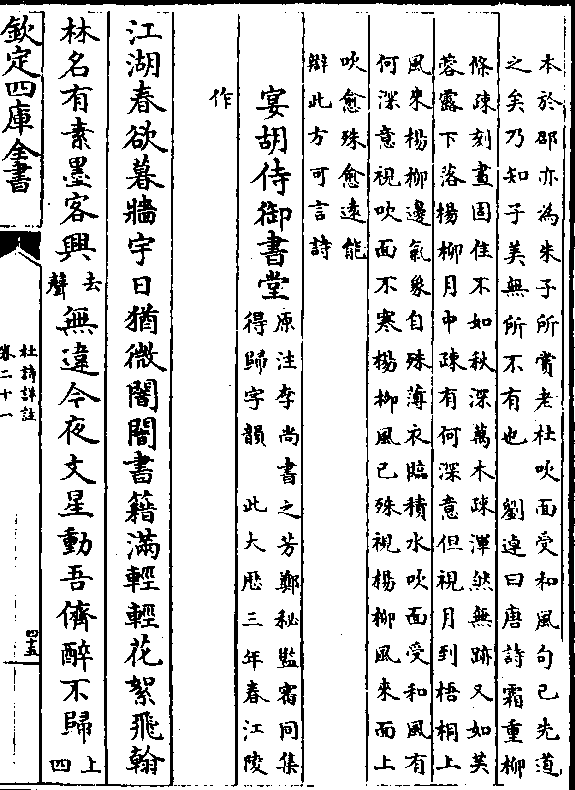 本於邵亦為朱子所賞老杜吹面受和風句已先道
之矣乃知子美無所不有也 劉逴曰唐詩霜重柳
條疎刻畫固佳不如秋深萬木疎渾然無跡又如芙
蓉露下落楊柳月中疎有何深意但視月到梧桐上
風來楊柳邊氣象自殊薄衣臨積水吹面受和風有
何深意視吹面不寒楊柳風已殊視楊柳風來面上
吹愈殊愈遠能
辯此方可言詩
宴胡侍御書堂
原注李尚書之芳鄭秘監審同集
得歸字韻 此大厯三年春江陵
作
江湖春欲暮牆宇日猶微闇闇書籍滿輕輕花絮飛翰
林名有素墨客興去聲無違今夜文星動吾儕醉不歸上四
欽定四庫全書
杜詩詳註
卷二十一